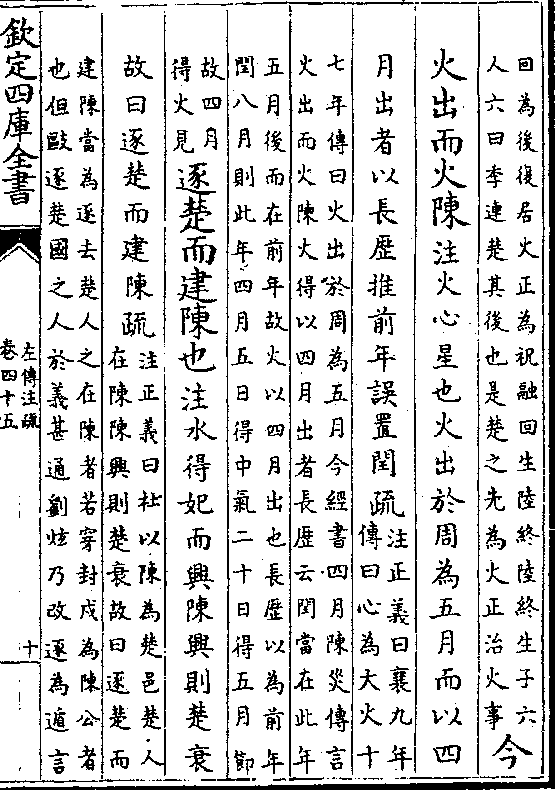 回為後復居火正為祝融回生陸終陸終生子六
人六曰季連楚其後也是楚之先為火正治火事
今
火出而火陳注火心星也火出於周為五月而以四
月出者以長歴推前年誤置閏疏
注正義曰襄九年
傳曰心為大火十
七年傳曰火出於周為五月今經書四月陳災傳言
火出而火陳火得以四月出者長歴云閏當在此年
五月後而在前年故火以四月出也長歴以為前年
閏八月則此年四月五日得中氣二十日得五月節
故四月
得火見
逐楚而建陳也注水得妃而興陳興則楚衰
故曰逐楚而建陳疏
注正義曰杜以陳為楚邑楚人
在陳陳興則楚衰故曰逐楚而
建陳當為逐去楚人之在陳者若穿封戍為陳公者
也但敺逐楚國之人於義甚通劉炫乃改逐為遁言
欽定四庫全書
左傳注疏
卷四十五
十